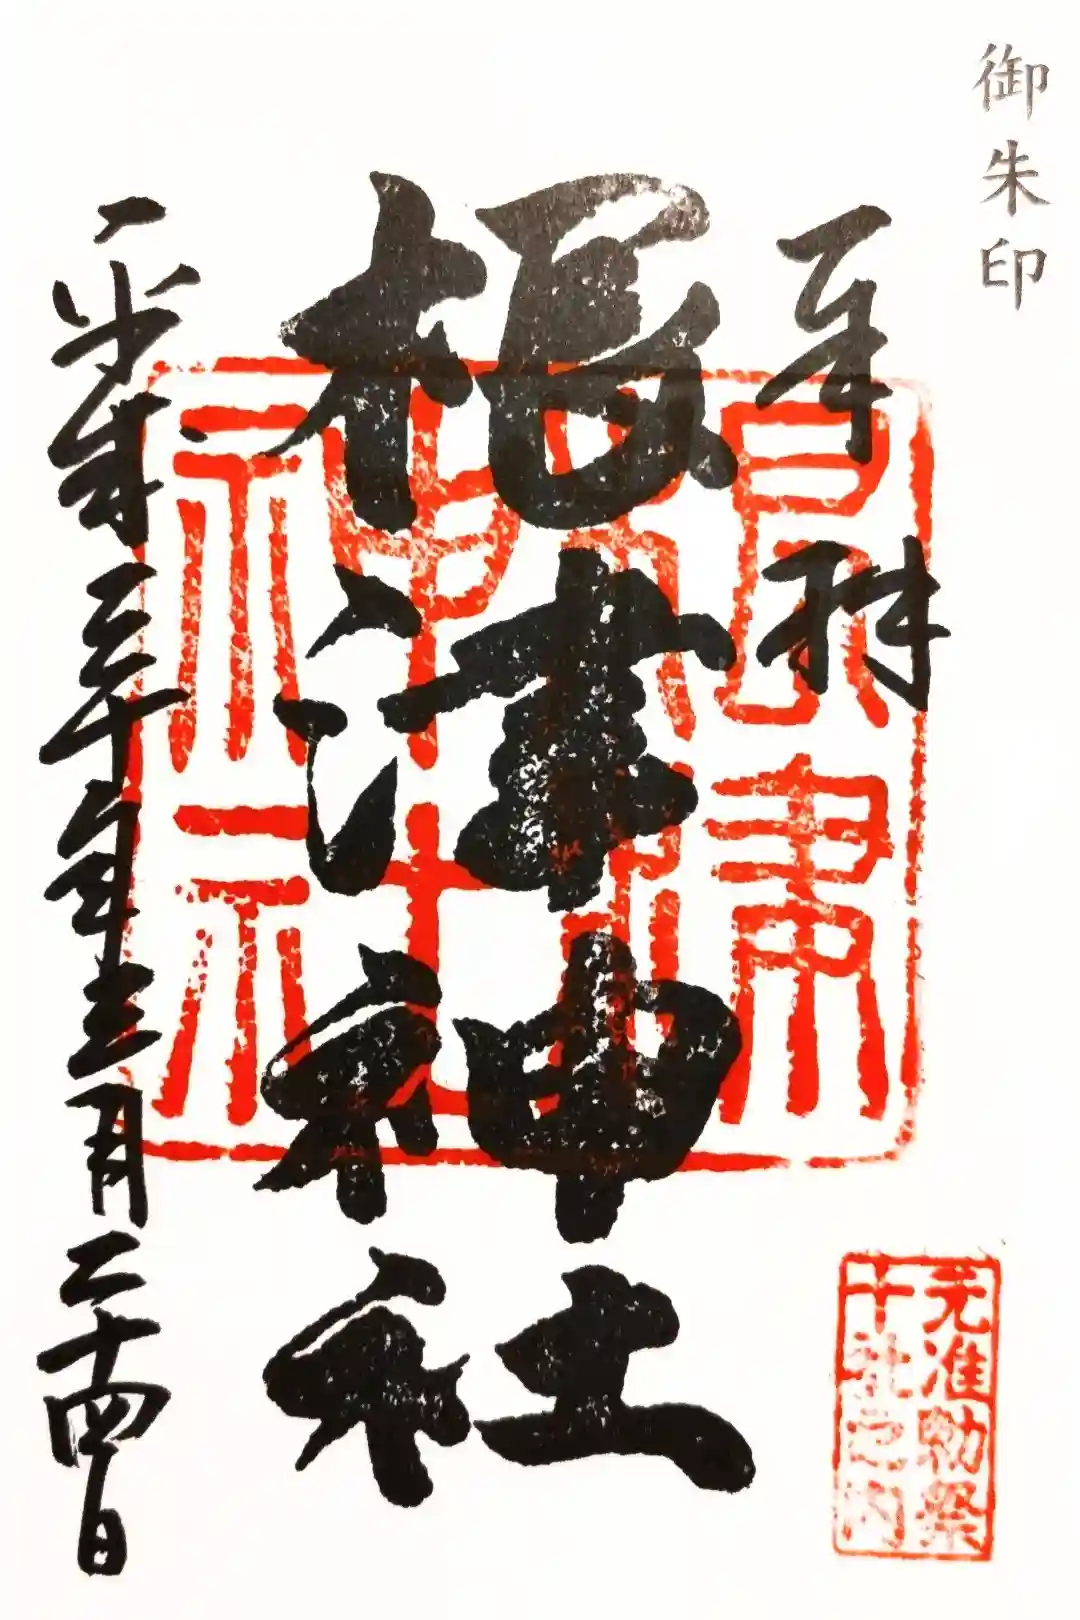 御朱印
奉拝
元准勅祭
十社之内
根津神社
根津
神社
平成三十年三月二十四日